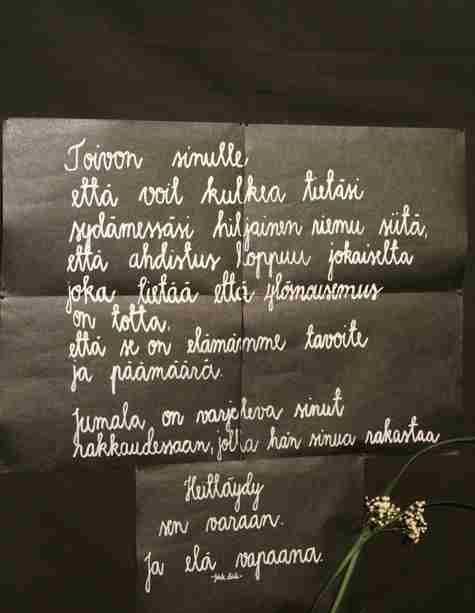 Toivon sinulle,
että voit kulkea tietäsi
sydämessäsi hiljainen riemu siitä,
että ahdistus loppuu jokaiselta
joka tietää että ylösnousemus
on totta,
että se on elämämme tavoite
ja päämäärä.
Jumala on varjeleva sinut
rakkaudessaan, jolla hän sinua rakastaa
Heittäydy
sen varaan.
Ja elä vapaana.